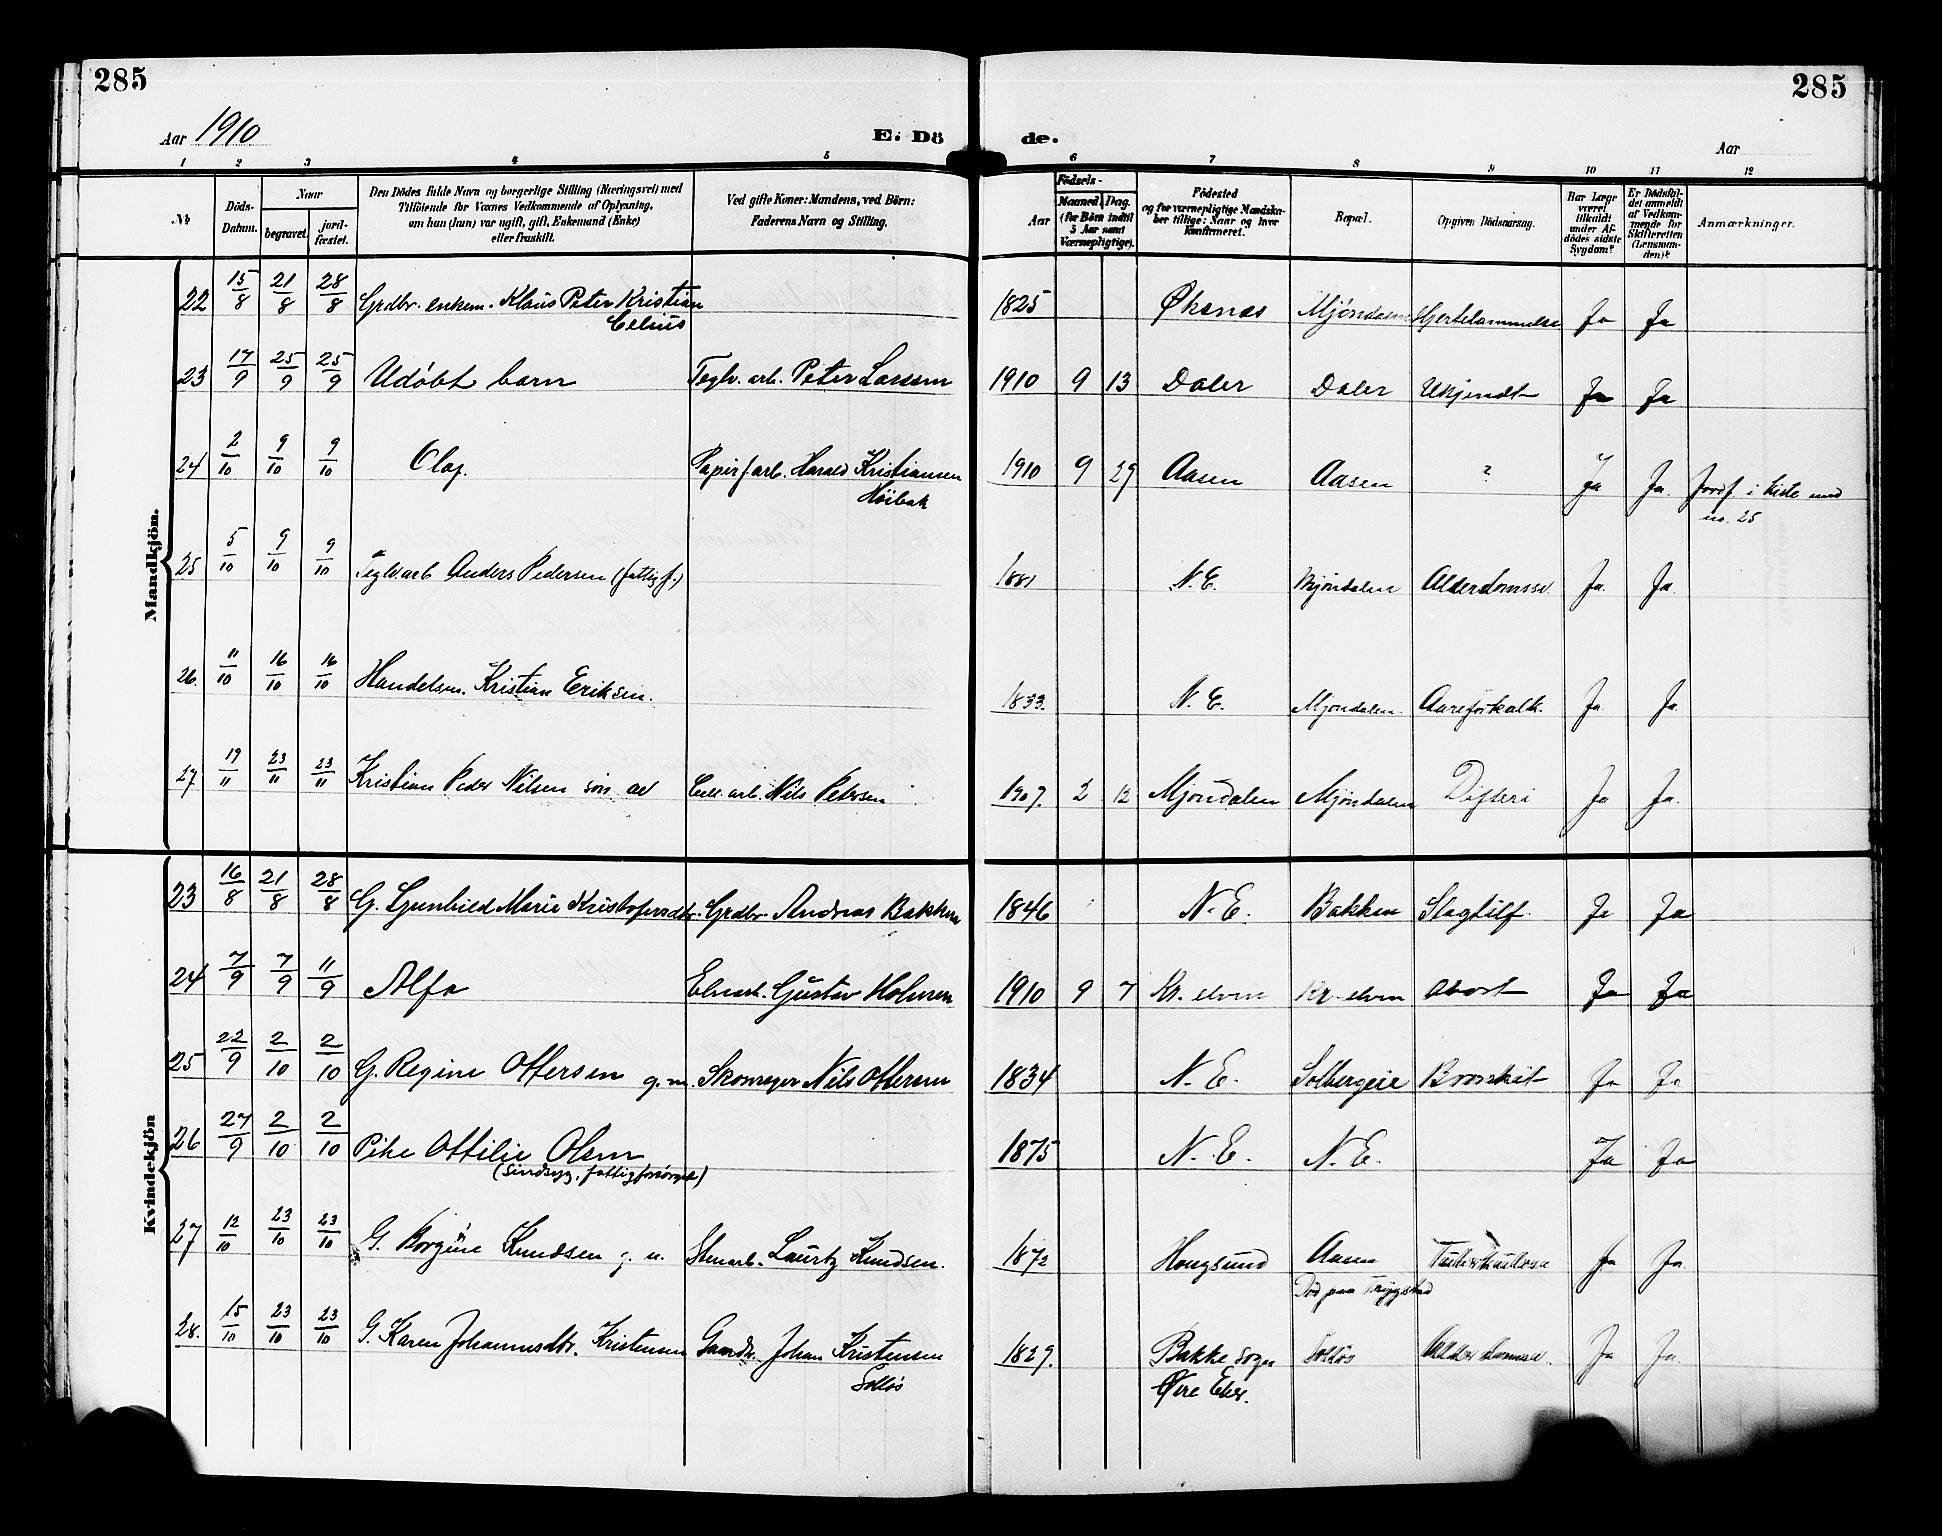 285
285
Aar 1910
E. Dö
de.
Aar
1 2 3 4 5 6 7 8 9 10 11 12
No
Döds-Datum.
Naar
begravet.
jord-fæstet.
Den Dödes fulde Navn og borgerlige Stilling (Næringsvei) med
Tilföiende for Voxnes Vedkommende af Oplysning,
om han (hun) var ugift, gift, Enkemand (Enke)
eller fraskilt.
Ved gifte Koner: Mandens, ved Börn:
Faderens Navn og Stilling.
Födsels-
Aar
Maaned. Dag.
(for Börn indtil
5 Aar samt
Værnepligtige).
Födested
og for værnepligtige Mandska-
ber tillige: Naar og hvor
konfirmeret.
Bopæl.
Opgiven Dödsaarsag.
Har Læge
været
tilkaldt
under Af-
dödes sidste
Sygdom?
Er Dödsfal-
det anmeldt
af Vedkom-
mende for
Skifteretten
(Lensman-
den)?
Anmærkninger.
Mandkjön.
22 15/8 21/8 28/8 Grdbr. enkem. Klaus Peter Kristian 1825 Økenes Mjöndalen Hjertelammelse Ja Ja
Celius
23 17/9 25/9 25/9 Udöbt barn Teglv. arb. Peter Larssen 1910 9 13 Daler Daler Ukjendt Ja Ja
24 2/10 9/10 9/10 Olaf. Papirf. arb. Harald Kristiansen 1910 9 29 Aasen Aasen ? Ja Ja. Jordf. i kiste med
Höibak
no. 25
25 5/10 9/10 9/10 Teglv. arb Anders Pedersen (fattigf.) N. E. Mjöndalen Alderdomssv. Ja. Ja.
26. 11/10 16/10 16/10 Handelsm. Kristian Eriksen. 1833. N. E. Mjöndalen. Aareforkalk. Ja. Ja.
27 19/11 23/11 23/11 Kristian Peder Nilsen sön av Cell. arb. Nils Petersen 1907. 2 12 Mjöndalen Mjöndalen Difteri Ja Ja.
Kvindekjön
23 16/8 21/8 28/8 G. Gunhild Marie Kristofersdtr. Grdbr. Andreas Bakken 1846 N. E. Bakken Slagtilf. Ja Ja
24 7/9 7/9 11/9 Alfa Elvearb. Gustav Holmen 1910 9 7 Kr. elven Kr. elven Abort Ja Ja
25 22/9 2/10 2/10 G. Regine Ottersen g. m. Skomager Nils Ottersen 1834 N. E. Solbergeie Bronkit Ja Ja
26 27/9 2/10 2/10 Pike Ottilie Olsen 1875 N. E. N. E. Ja Ja
(Sindssyg, fattigforsörget)
27 12/10 23/10 23/10 G. Borgine Knudsen g. m. Stenarb. Lauritz Knudsen. 1872 Hougsund Aasen Tuberkulose Ja Ja.
Död paa Trygstad
28. 15/10 23/10 23/10 G. Karen Johannesdtr. Kristensen Gaardbr. Johan Kristensen 1829. Bakke sogn Solläs Alderdomssv. Ja Ja.
Solläs
Øvre Eker.